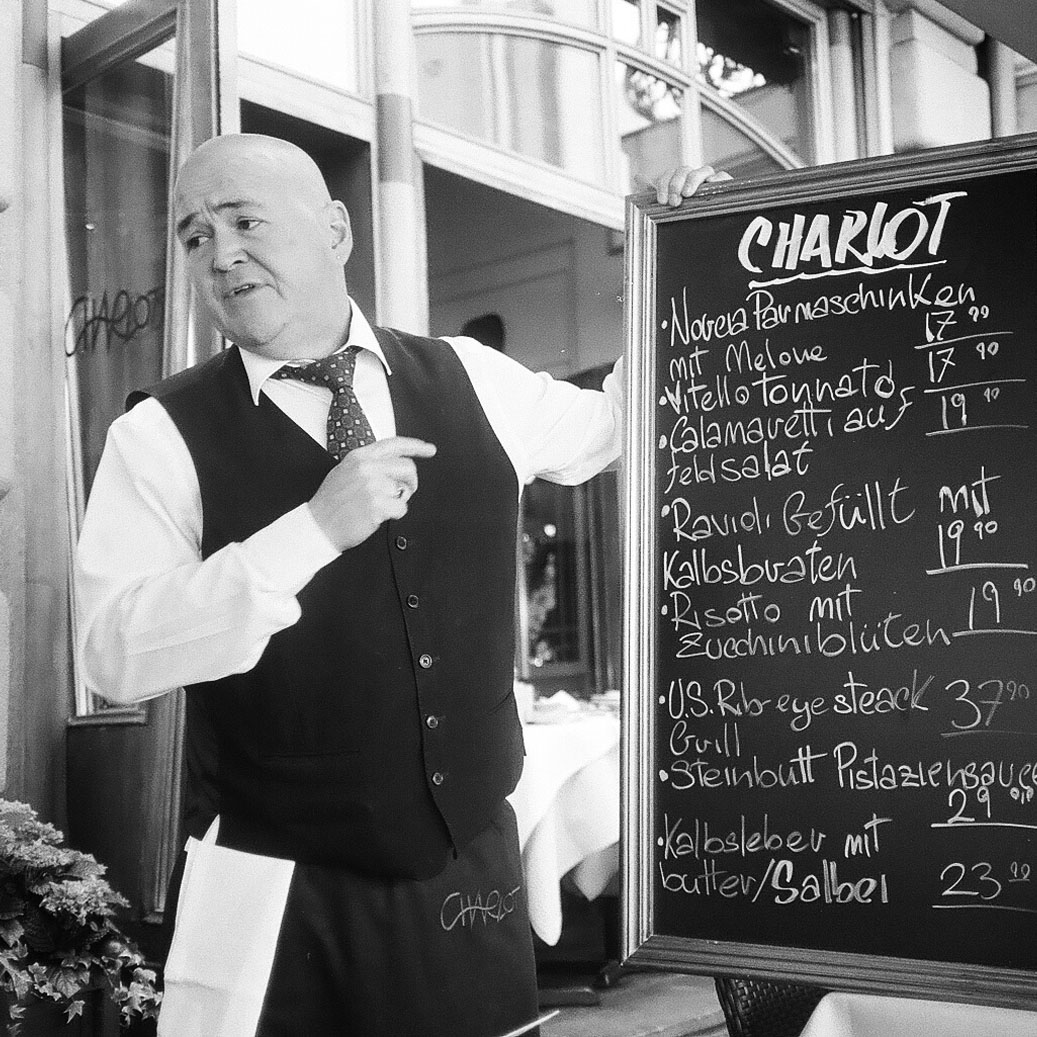 CHARLOT
CHARLOT
• Novera Parmaschinken
17 90
mit Melone
17 90
• Vitello tonnato
• Calamaretti auf
19 90
feldsalat
• Ravioli Gefüllt mit
19 90
Kalbsbraten
• Risotto mit
19 90
Zucchiniblüten
• U.S. Rib-eye steack
37 90
Grill
• Steinbutt Pistaziensauce
29
• Kalbsleber mit
butter/Salbei
23 90
CHARLOT